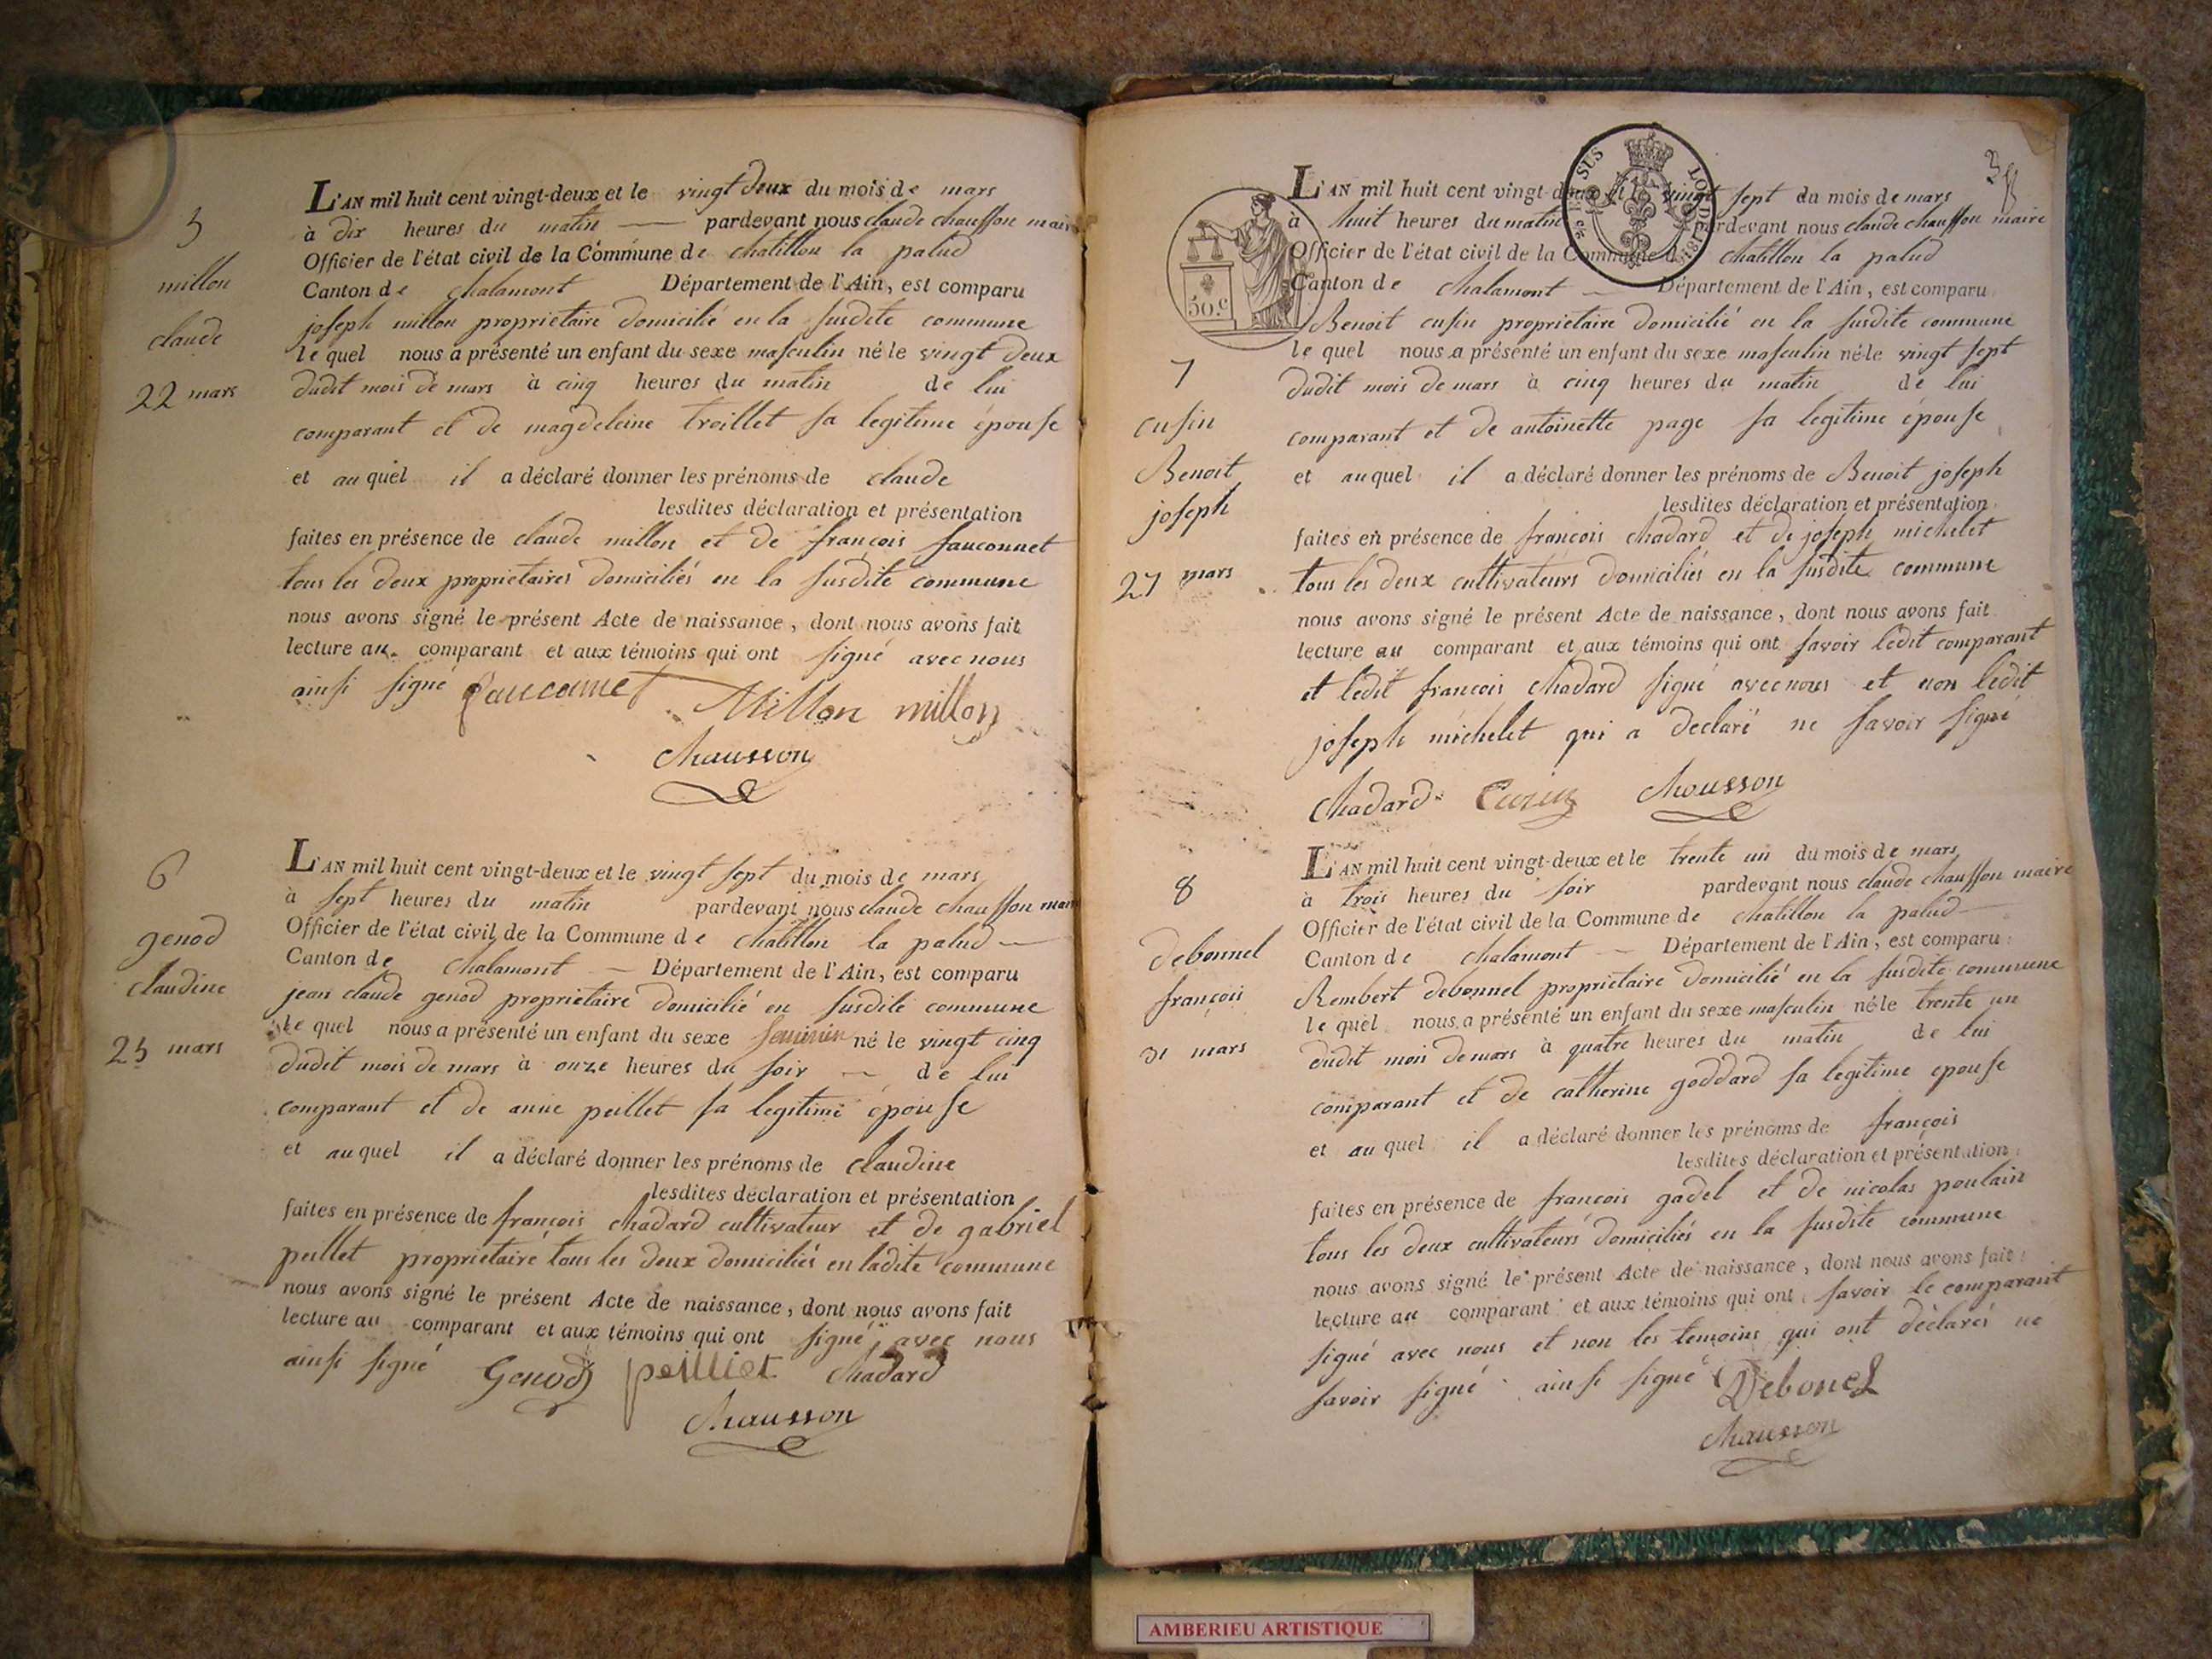 5
millon
claude
22 mars
L'AN mil huit cent vingt-deux et le vingt deux du mois de mars
à dix heures du matin — pardevant nous claude chausson maire
Officier de l'état civil de la Commune de chatillon la palud
Canton de chalamont Département de l'Ain, est comparu
joseph millon proprietaire domicilié en la susdite commune
le quel nous a présenté un enfant du sexe masculin né le vingt deux
dudit mois de mars à cinq heures du matin de lui
comparant et de magdeleine troillet sa legitime épouse
et au quel il a déclaré donner les prénoms de claude
lesdites déclaration et présentation
faites en présence de claude millon et de françois fauconnet
tous les deux proprietaires domiciliés en la susdite commune
nous avons signé le présent Acte de naissance, dont nous avons fait
lecture au comparant et aux témoins qui ont signé avec nous
ainsi signé
Millon millon
Chausson
6
genod
claudine
25 mars
L'AN mil huit cent vingt-deux et le vingt sept du mois de mars
à sept heures du matin pardevant nous claude chausson maire
Officier de l'état civil de la Commune de chatillon la palud —
Canton de chalamont — Département de l'Ain, est comparu
jean claude genod proprietaire domicilié en susdite commune
le quel nous a présenté un enfant du sexe feminin né le vingt cinq
dudit mois de mars à onze heures du soir — de lui
comparant et de anne peillet sa legitime épouse
et au quel il a déclaré donner les prénoms de claudine
lesdites déclaration et présentation
faites en présence de françois chadard cultivateur et de gabriel
peillet proprietaire tous les deux domiciliés en ladite commune
nous avons signé le présent Acte de naissance, dont nous avons fait
lecture au comparant et aux témoins qui ont signé avec nous
ainsi signé Genod peilliet Chadard
Chausson
50 c.
7
cusin
Benoit
joseph
27 mars
L'AN mil huit cent vingt-deux et le vingt sept du mois de mars
à huit heures du matin pardevant nous claude chausson maire
Officier de l'état civil de la Commune de chatillon la palud
Canton de chalamont — Département de l'Ain, est comparu
Benoit cusin proprietaire domicilié en la susdite commune
le quel nous a présenté un enfant du sexe masculin né le vingt sept
dudit mois de mars à cinq heures du matin de lui
comparant et de antoinette page sa legitime épouse
et au quel il a déclaré donner les prénoms de Benoit joseph
lesdites déclaration et présentation
faites en présence de françois chadard et de joseph michelet
tous les deux cultivateurs domiciliés en la susdite commune
nous avons signé le présent Acte de naissance, dont nous avons fait
lecture au comparant et aux témoins qui ont savoir ledit comparant
et ledit françois chadard signé avec nous et non ledit
joseph michelet qui a declaré ne savoir signé
Chadard Cuzin Chausson
8
debonnel
françois
31 mars
L'AN mil huit cent vingt-deux et le trente un du mois de mars
à trois heures du soir pardevant nous claude chausson maire
Officier de l'état civil de la Commune de chatillon la palud —
Canton de chalamont — Département de l'Ain, est comparu
Rembert debonnel proprietaire domicilié en la susdite commune
le quel nous a présenté un enfant du sexe masculin né le trente un
dudit mois de mars à quatre heures du matin de lui
comparant et de catherine goddard sa legitime epouse
et au quel il a déclaré donner les prénoms de françois
lesdites déclaration et présentation
faites en présence de françois gadel et de nicolas poulain
tous les deux cultivateurs domiciliés en la susdite commune
nous avons signé le présent Acte de naissance, dont nous avons fait
lecture au comparant et aux témoins qui ont savoir le comparant
signé avec nous et non les temoins qui ont déclarés ne
savoir signé ainsi signé Debonel
Chausson
AMBERIEU ARTISTIQUE